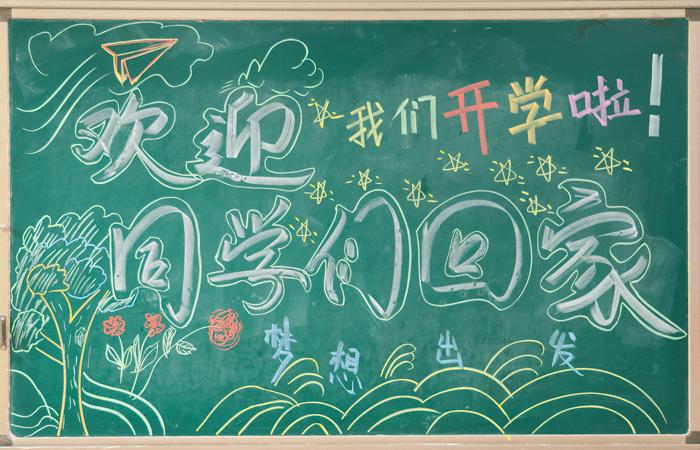 欢迎
我们开学啦!
同学们回家
梦想出发